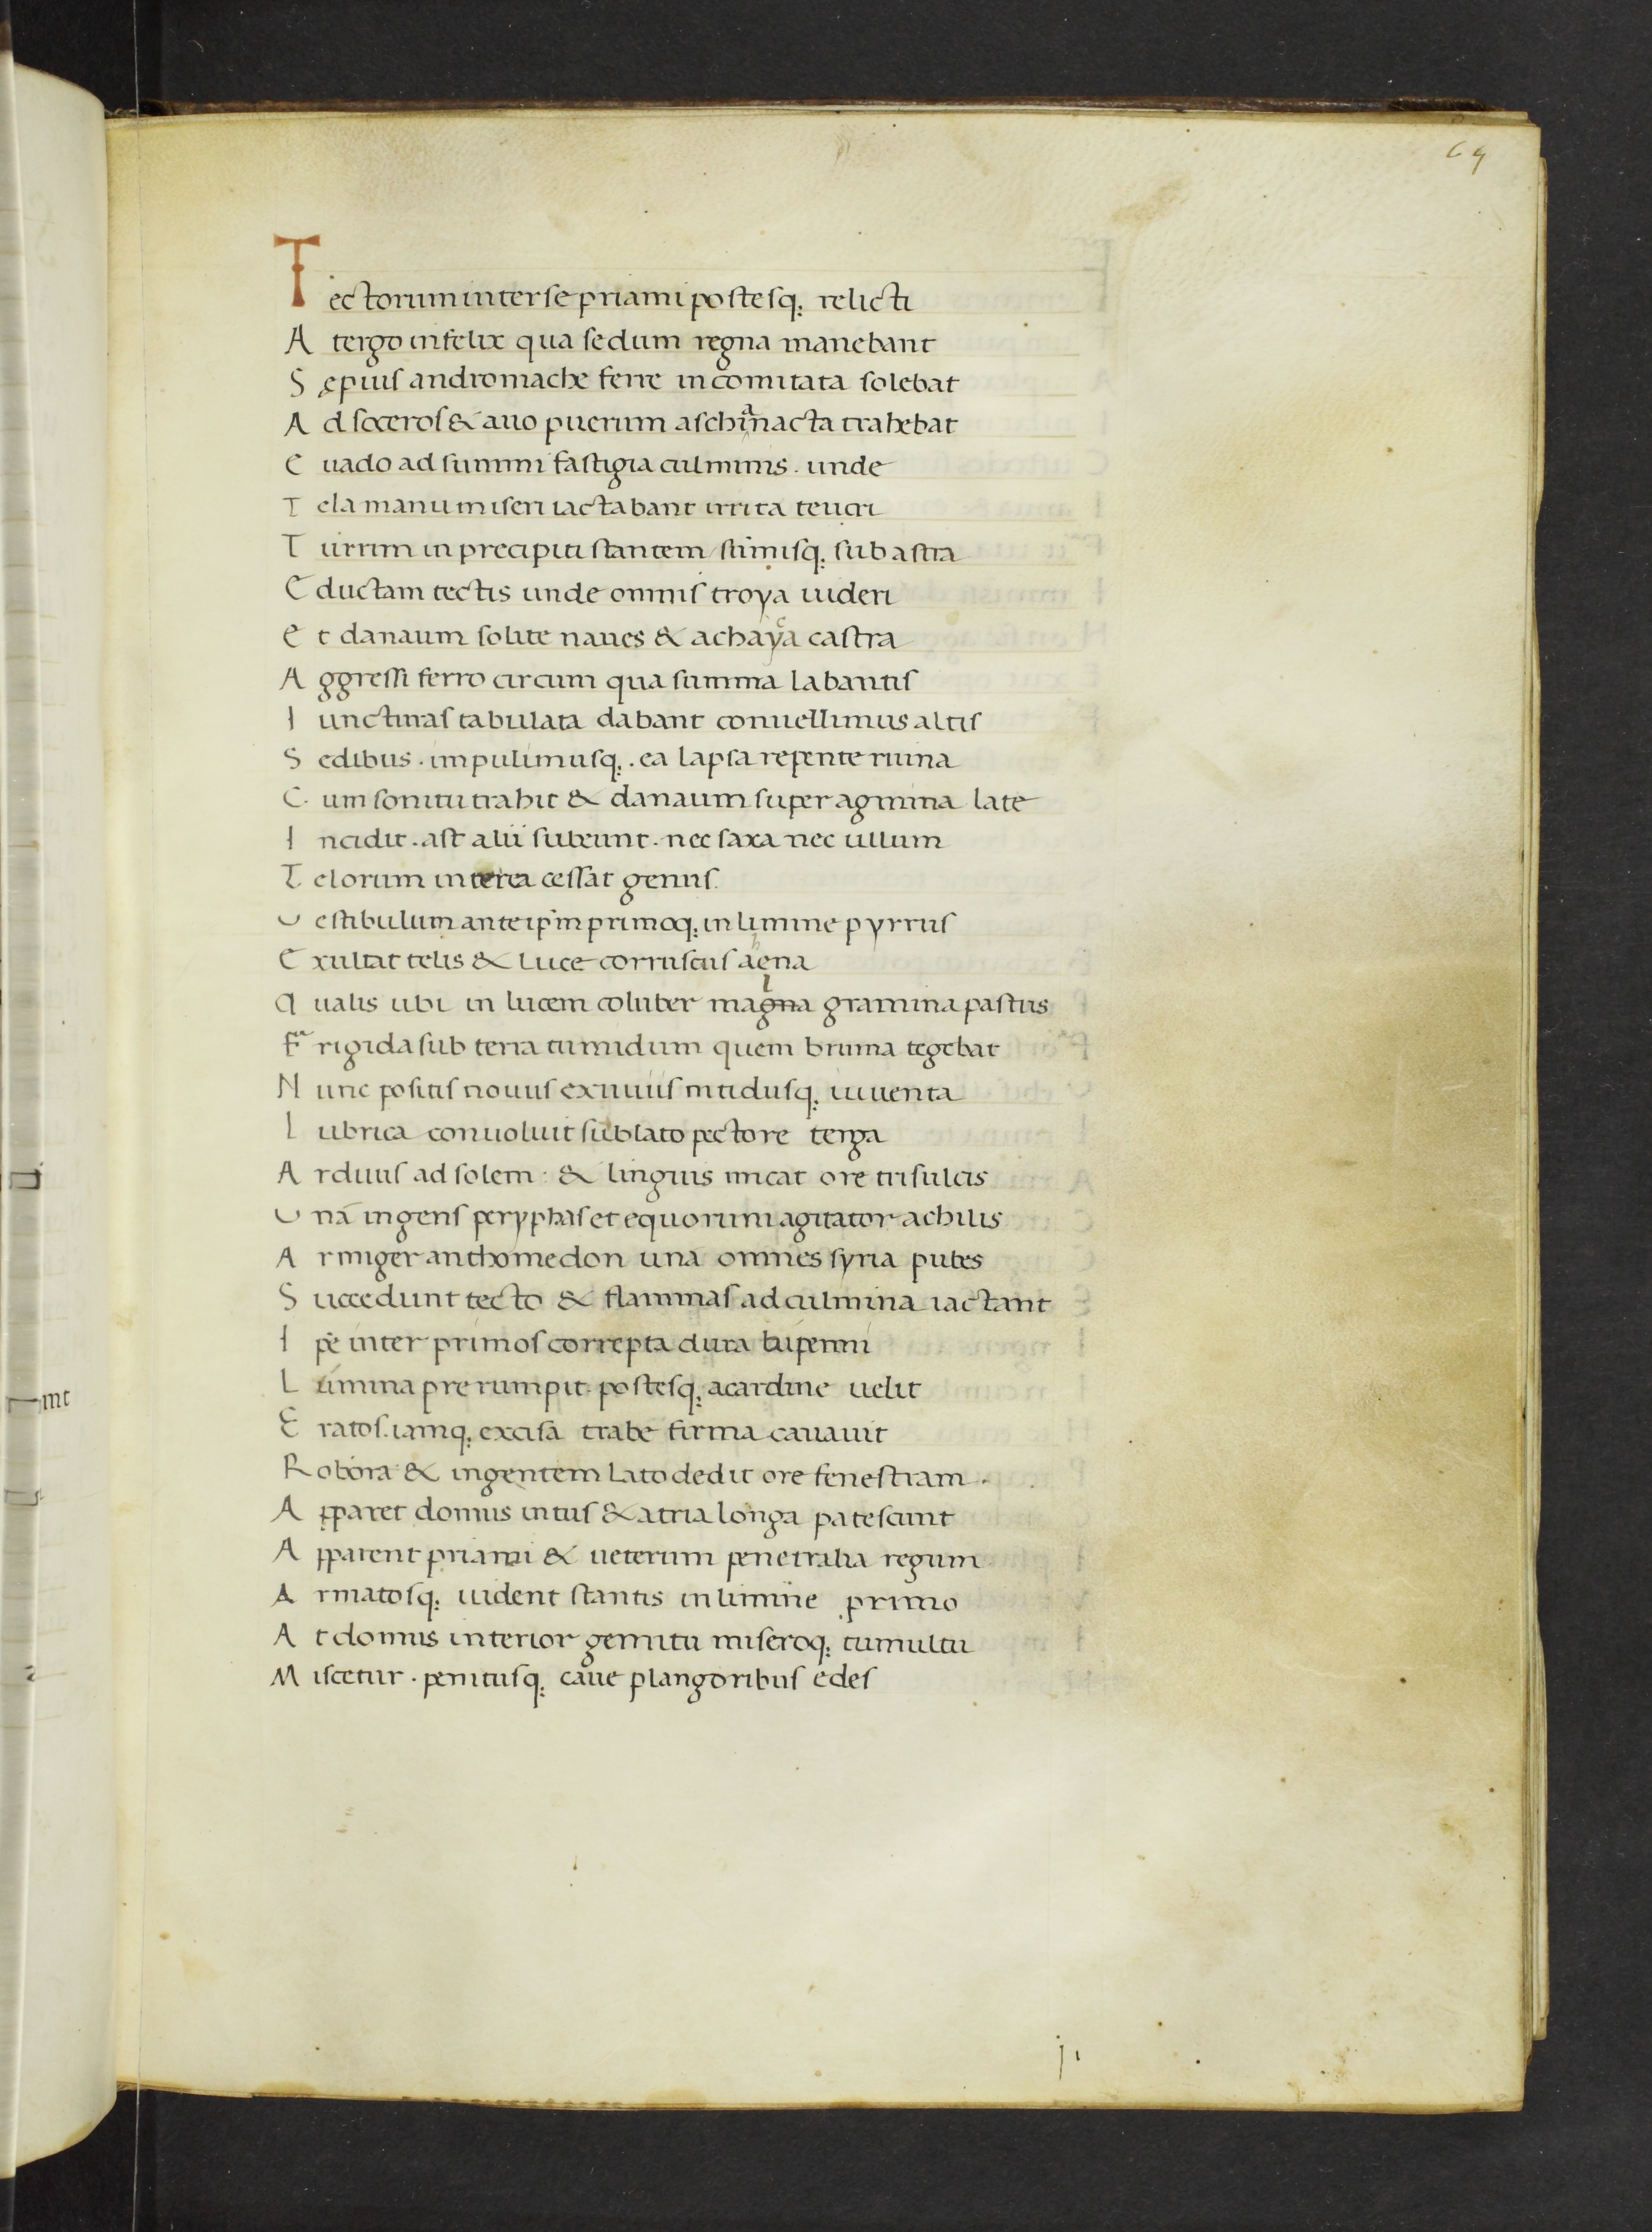 69
Tectorum inter se priami postesq; relicti
A tergo infelix qua se dum regna manebant
Sępius andromache ferre incomitata solebat
Ad soceros & auo puerum aschianacta trahebat
Euado ad summi fastigia culminis . unde
Tela manu miseri iactabant irrita teucri
Turrim in precipiti stantem sumisq; sub astra
Eductam tectis unde omnis troya uideri
Et danaum solite naues & achaya castra
Aggressi ferro circum qua summa labantis
Iuncturas tabulata dabant conuellimus altis
Sedibus . impulimusq; . ea lapsa repente ruina
Cum sonitu trahit & danaum super agmina late
Incidit . ast alii subeunt . nec saxa nec ullum
Telorum interea cessat genus.
Vestibulum ante ip̄m primoq; in limine pyrrus
Exultat telis & luce corruscus aena
Qualis ubi in lucem coluber mala gramina pastus
Frigida sub terra tumidum quem bruma tegebat
Nunc positis nouus exuuiis nitidusq; iuuenta
Lubrica conuoluit sublato pectore terga
Arduus ad solem : & linguis micat ore trisulcis
Vnā ingens peryphas et equorum agitator achilis
Armiger anthomedon una omnes syria pubes
Succedunt tecto & flammas ad culmina iactant
Ip̄e inter primos correpta dura bipenni
Limina prerumpit . postesq; a cardine uelit
Eratos . iamq; excisa trabe firma cauauit
Robora & ingentem lato dedit ore fenestram .
Apparet domus intus & atria longa patescunt
Apparent priami & ueterum penetralia regum
Armatosq; uident stantis in limine primo
At domus interior gemitu miseroq; tumultu
Miscetur . penitusq; caue plangoribus edes
mt